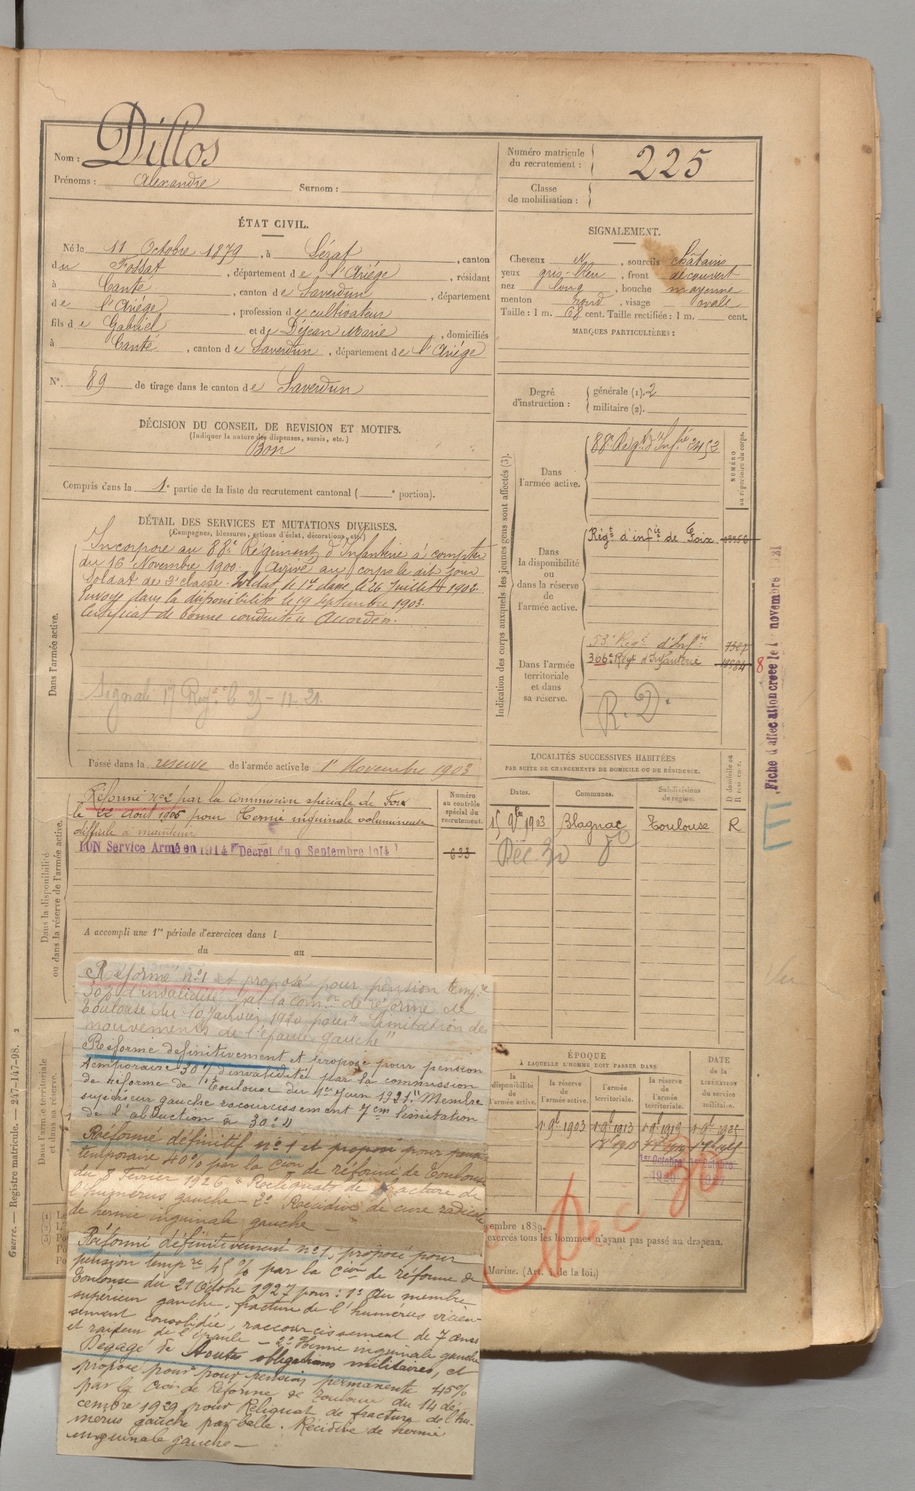 Nom : Dillos
Prénoms : Alexandre Surnom :
Numéro matricule
du recrutement : 225
Classe
de mobilisation :
ÉTAT CIVIL.
Né le 11 Octobre 1879, à Lézat, canton
du Fossat, département de l'Ariége, résidant
à Canté, canton de Saverdun, département
de l'Ariége, profession de cultivateur
fils de Gabriel et de Déjean Marie, domiciliés
à Canté, canton de Saverdun, département de l'Ariége
N°. 89 de tirage dans le canton de Saverdun
SIGNALEMENT.
Cheveux , sourcils châtains
yeux gris-bleu, front découvert
nez long, bouche moyenne
menton rond, visage ovale
Taille : 1 m. cent. Taille rectifiée : 1 m. cent.
MARQUES PARTICULIÈRES :
DÉCISION DU CONSEIL DE REVISION ET MOTIFS.
(Indiquer la nature des dispenses, sursis, etc.)
Bon
Compris dans la 1e partie de la liste du recrutement cantonal ( e portion).
Degré
d'instruction :
générale (1). 2
militaire (2).
DÉTAIL DES SERVICES ET MUTATIONS DIVERSES.
(Campagnes, blessures, actions d'éclat, décorations, etc.)
Dans l'armée active.
Incorporé au 88e Régiment d'Infanterie à compter
du 16 Novembre 1900. Arrivé au corps le dit jour
Soldat de 2e classe. Soldat de 1re classe le 26 Juillet 1902
Envoyé dans la disponibilité le 19 septembre 1903.
Certificat de bonne conduite Accordé.
Signalé 17 Regt
Passé dans la réserve de l'armée active le 1er Novembre 1903
Indication des corps auxquels les jeunes gens sont affectés (3).
NUMÉRO
au répertoire du corps.
Dans
l'armée active.
88e Régt d'Infie 2453
Dans
la disponibilité
ou dans
la réserve
de
l'armée active.
Régt d'infie de Foix
Dans l'armée
territoriale
et dans
sa réserve.
53e Régt d'Infie
366e Régt d'Infanterie
R.D.
Fiche d'affectation créée le 1 novembre
Dans la disponibilité
ou dans la réserve de l'armée active.
Réformé n°2 par la commission spéciale de Foix
le 22 Août 1906 pour Hernie inguinale volumineuse
difficile à maintenir
BON Service Armé en 1914 Décret du 9 Septembre 1914
Numéro
au contrôle
spécial du
recrutement.
633
A accompli une 1re période d'exercices dans l
du au
LOCALITÉS SUCCESSIVES HABITÉES
PAR SUITE DE CHANGEMENTS DE DOMICILE OU DE RÉSIDENCE.
Dates. Communes. Subdivisions
de région.
D domicile ou
R résidence.
15 9bre 1903 Blagnac Toulouse R
Déc 30
Dans l'armée territoriale
et dans sa réserve.
Réformé n°1 et proposé pour pension temp.re
invalidité par la Comon de réforme de
Toulouse du 10 janvier 1920 pour "limitation de
mouvements de l'épaule gauche"
Réformé définitivement et proposé pour pension
temporaire 30% d'invalidité par la commission
de réforme de Toulouse du 1er Juin 1921. "Membre
supérieur gauche raccourcissement 7cm limitation
de l'abduction à 30°"
Réformé définitif n°1 et proposé pour pension
temporaire 40% par la Cion de réforme de Toulouse
du 8 Février 1926, "Reliquats de fracture de
l'humérus gauche – 2° Récidive de cure radicale
de hernie inguinale gauche –
Réformé définitivement n°1, proposé pour
pension tempre 45% par la Cion de réforme de
Toulouse du 21 Octobre 1927 pour : 1° du membre
supérieur gauche, fracture de l'humérus vicieu-
sement consolidée, raccourcissement de 7 cms
et raideur de l'épaule – 2° Hernie inguinale gauche
Dégagé de toutes obligations militaires, et
proposé pour pension permanente 45%
par la Cion de Réforme de Toulouse du 14 dé-
cembre 1929 pour Reliquat de fracture de l'hu-
mérus gauche par balle. Récidive de hernie
inguinale gauche –
ÉPOQUE
À LAQUELLE L'HOMME DOIT PASSER DANS
DATE
de la
LIBÉRATION
du service
militaire.
la
disponibilité
de l'armée active.
la réserve
de
l'armée active.
l'armée
territoriale.
la réserve
de l'armée
territoriale.
1 9bre 1903 1 9bre 1913 1 9bre 1919 1 9bre 1925
Déc 30
exercés tous les hommes n'ayant pas passé au drapeau.
Marine. (Art. 4 de la loi.)
Guerre. — Registre matricule. — 247-147-98.